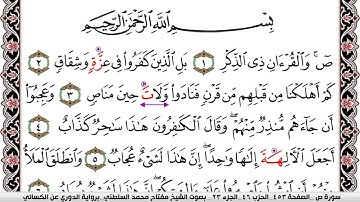 بِسْمِ ٱللَّهِ ٱلرَّحْمَٰنِ ٱلرَّحِيمِ
صٓ ۚ وَٱلْقُرْءَانِ ذِى ٱلذِّكْرِ ١ بَلِ ٱلَّذِينَ كَفَرُوا۟ فِى عِزَّةٍ وَشِقَاقٍ ٢
كَمْ أَهْلَكْنَا مِن قَبْلِهِم مِّن قَرْنٍ فَنَادَوا۟ وَّلَاتَ حِينَ مَنَاصٍ ٣ وَعَجِبُوٓا۟
أَن جَآءَهُم مُّنذِرٌ مِّنْهُمْ ۖ وَقَالَ ٱلْكَٰفِرُونَ هَٰذَا سَٰحِرٌ كَذَّابٌ ٤
أَجَعَلَ ٱلْءَالِهَةَ إِلَٰهًا وَٰحِدًا ۖ إِنَّ هَٰذَا لَشَىْءٌ عُجَابٌ ٥ وَٱنطَلَقَ ٱلْمَلَأُ
سورة ص . الصفحة ٤٥٣ . الحزب ٤٦ . الجزء ٢٣ . بصوت الشيخ مفتاح محمد السلطني . برواية الدوري عن الكسائي